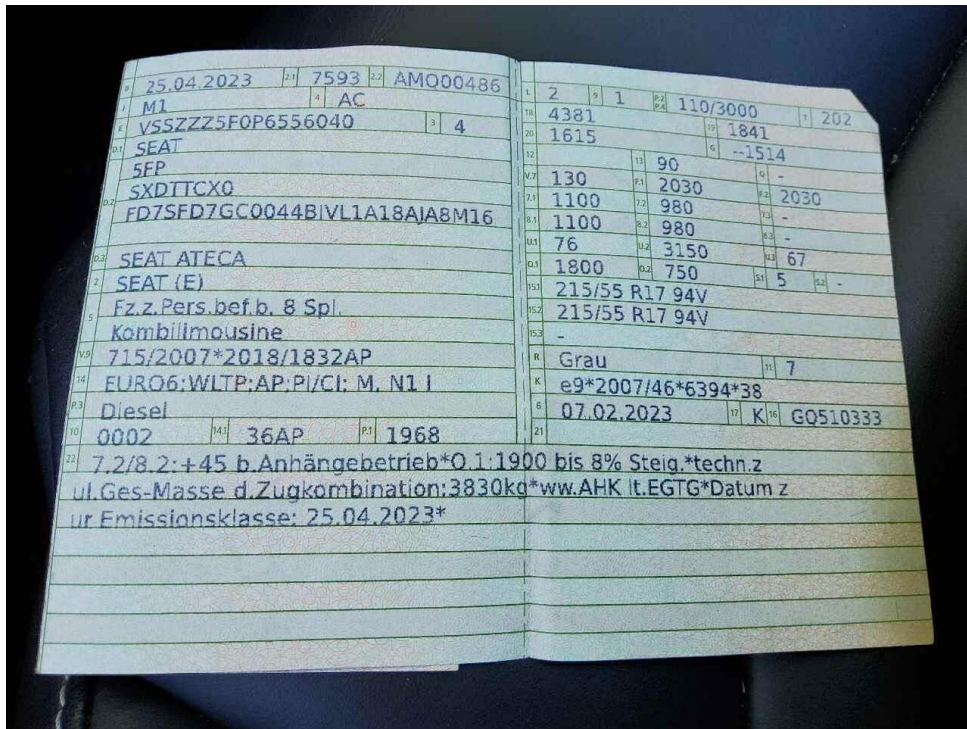 B 25.04.2023 2.1 7593 2.2 AMO00486
J M1 4 AC
E VSSZZZ5F0P6556040 3 4
D.1 SEAT
5FP
D.2 SXDTTCX0
FD7SFD7GC0044BIVL1A18AJA8M16
D.3 SEAT ATECA
2 SEAT (E)
5 Fz.z.Pers.bef.b. 8 Spl.
Kombilimousine
V.9 715/2007*2018/1832AP
14 EURO6;WLTP;AP;PI/CI; M, N1 I
P.3 Diesel
10 0002 14.1 36AP P.1 1968
L 2 9 1 P.2 P.4 110/3000 T 202
18 4381 19 1841
20 1615 G --1514
12 13 90 Q -
V.7 130 F.1 2030 F.2 2030
7.1 1100 7.2 980 7.3 -
8.1 1100 8.2 980 8.3 -
U.1 76 U.2 3150 U.3 67
O.1 1800 O.2 750 S.1 5 S.2 -
15.1 215/55 R17 94V
15.2 215/55 R17 94V
15.3 -
R Grau 11 7
K e9*2007/46*6394*38
6 07.02.2023 17 K 16 GQ510333
21
22 7.2/8.2:+45 b.Anhängebetrieb*O.1:1900 bis 8% Steig.*techn.z
ul.Ges-Masse d.Zugkombination:3830kg*ww.AHK lt.EGTG*Datum z
ur Emissionsklasse: 25.04.2023*